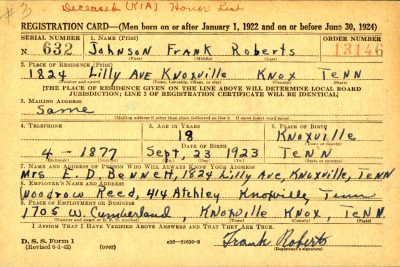 #3 Deceased (KIA) Honor List
REGISTRATION CARD—(Men born on or after January 1, 1922 and on or before June 30, 1924)
SERIAL NUMBER 1. NAME (Print) ORDER NUMBER
N 632 Johnson Frank Roberts 13146
(First) (Middle) (Last)
2. PLACE OF RESIDENCE (Print)
1824 Lilly Ave Knoxville Knox Tenn
(Number and street) (Town, township, village, or city) (County) (State)
[THE PLACE OF RESIDENCE GIVEN ON THE LINE ABOVE WILL DETERMINE LOCAL BOARD
JURISDICTION; LINE 2 OF REGISTRATION CERTIFICATE WILL BE IDENTICAL]
3. MAILING ADDRESS
Same
(Mailing address if other than place indicated on line 2. If same insert word same)
4. TELEPHONE 5. AGE IN YEARS 6. PLACE OF BIRTH
18 Knoxville
DATE OF BIRTH
4-1877 Sept, 23 1923 Tenn
7. NAME AND ADDRESS OF PERSON WHO WILL ALWAYS KNOW YOUR ADDRESS
Mrs E. D. Bennett, 1824 Lilly Ave, Knoxville, Tenn
8. EMPLOYER'S NAME AND ADDRESS
Woodrow Reed, 414 Atchley Knoxville Tenn
9. PLACE OF EMPLOYMENT OR BUSINESS
1705 W. Cumberland, Knoxville Knox, Tenn.
I AFFIRM THAT I HAVE VERIFIED ABOVE ANSWERS AND THAT THEY ARE TRUE.
D. S. S. Form 1
(Revised 6-1-42) (over) Frank Roberts